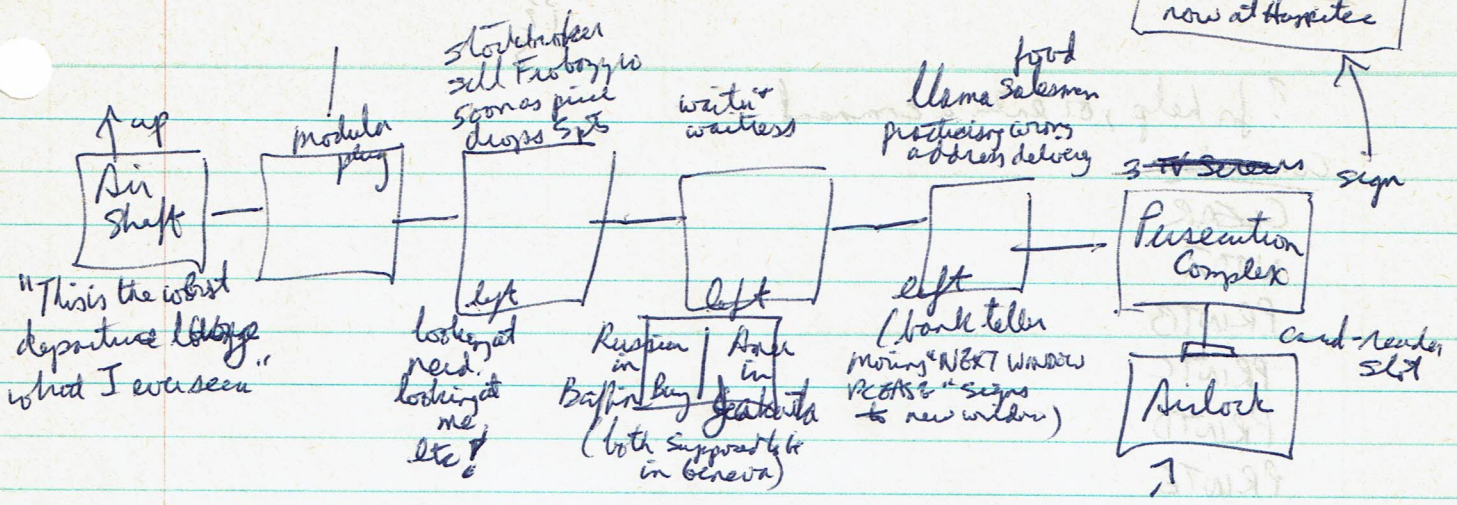 now at
↑ up
Air
Shaft
"This is the worst
departure lounge
what I ever seen"
modular
plug
stockbroker
sell Frobozzco
soon as price
drops 5 pts
left
looking at
need.
looking at
me,
etc!
waiter +
waitress
left
Russian
in
Baffin Bay
Amer
in
Jakarta
(both supposed to be
in Geneva)
food
llama salesman
practising wrong
address delivery
left
(bank teller
moving "NEXT WINDOW
PLEASE" signs
to new window)
3 TV Screens
Persecution
Complex
sign
card-reader
slot
Airlock